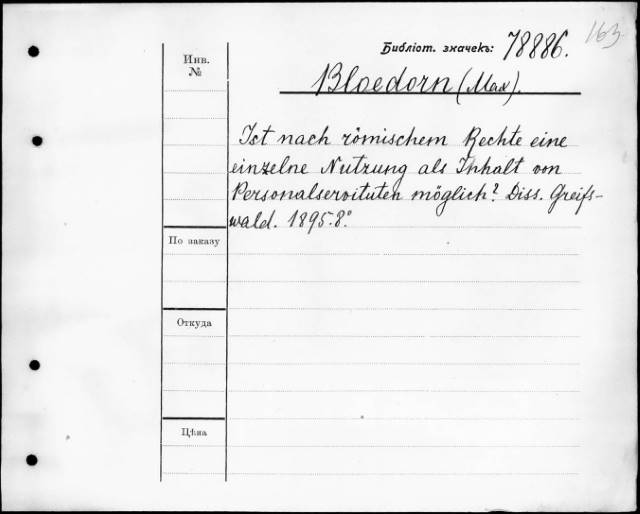 163.
Библіот. значекъ: 78886.
Инв.
№
Bloedorn (Max).
Ist nach römischem Rechte eine
einzelne Nutzung als Inhalt von
Personalservituten möglich? Diss. Greifs-
wald. 1895. 8°.
По заказу
Откуда
Цѣна